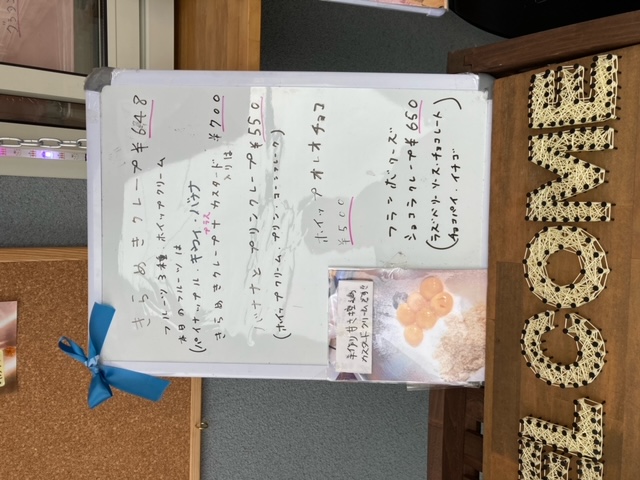 きらめきクレープ ¥648
フルーツ3種、ホイップクリーム
本日のフルーツは
(パイナップル・キウイ・バナナ
プラス
きらめきクレープナ カスタード入りは ¥700
バナナとプリンクレープ ¥550
(ホイップクリーム、プリン・コーンフレーク)
ホイップオレオチョコ
¥500
フランボワーズ
ショコラクレープ ¥650
(ラズベリーソース・チョコレート)
(チョコパイ・イチゴ
手作り甘さ控え目
カスタードクリームです
ELCOME